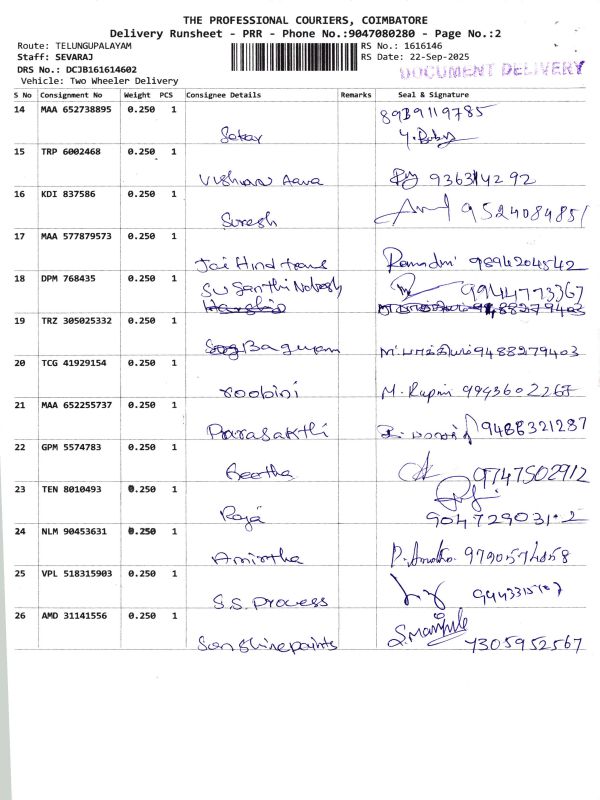 THE PROFESSIONAL COURIERS, COIMBATORE
Delivery Runsheet - PRR - Phone No.:9047080280 - Page No.:2
Route: TELUNGUPALAYAM RS No.: 1616146
Staff: SEVARAJ RS Date: 22-Sep-2025
DRS No.: DCJB161614602 DOCUMENT DELIVERY
Vehicle: Two Wheeler Delivery
S No Consignment No Weight PCS Consignee Details Remarks Seal & Signature
14 MAA 652738895 0.250 1 8939119785
15 TRP 6002468 0.250 1
9363142 92
16 KDI 837586 0.250 1
Suresh 9524084851
17 MAA 577879573 0.250 1
Jai Hind trans 9894204542
18 DPM 768435 0.250 1 9944773367
19 TRZ 305025332 0.250 1
9488279403
20 TCG 41929154 0.250 1
roobini M. Rupini 9943602267
21 MAA 652255737 0.250 1
Parasakthi 9488321287
22 GPM 5574783 0.250 1
Geetha 9747502912
23 TEN 8010493 0.250 1
Raja 9047290312
24 NLM 90453631 0.250 1
Amirtha 9790574858
25 VPL 518315903 0.250 1
S.S. Process
26 AMD 31141556 0.250 1
Sonshinepaints 7305952567